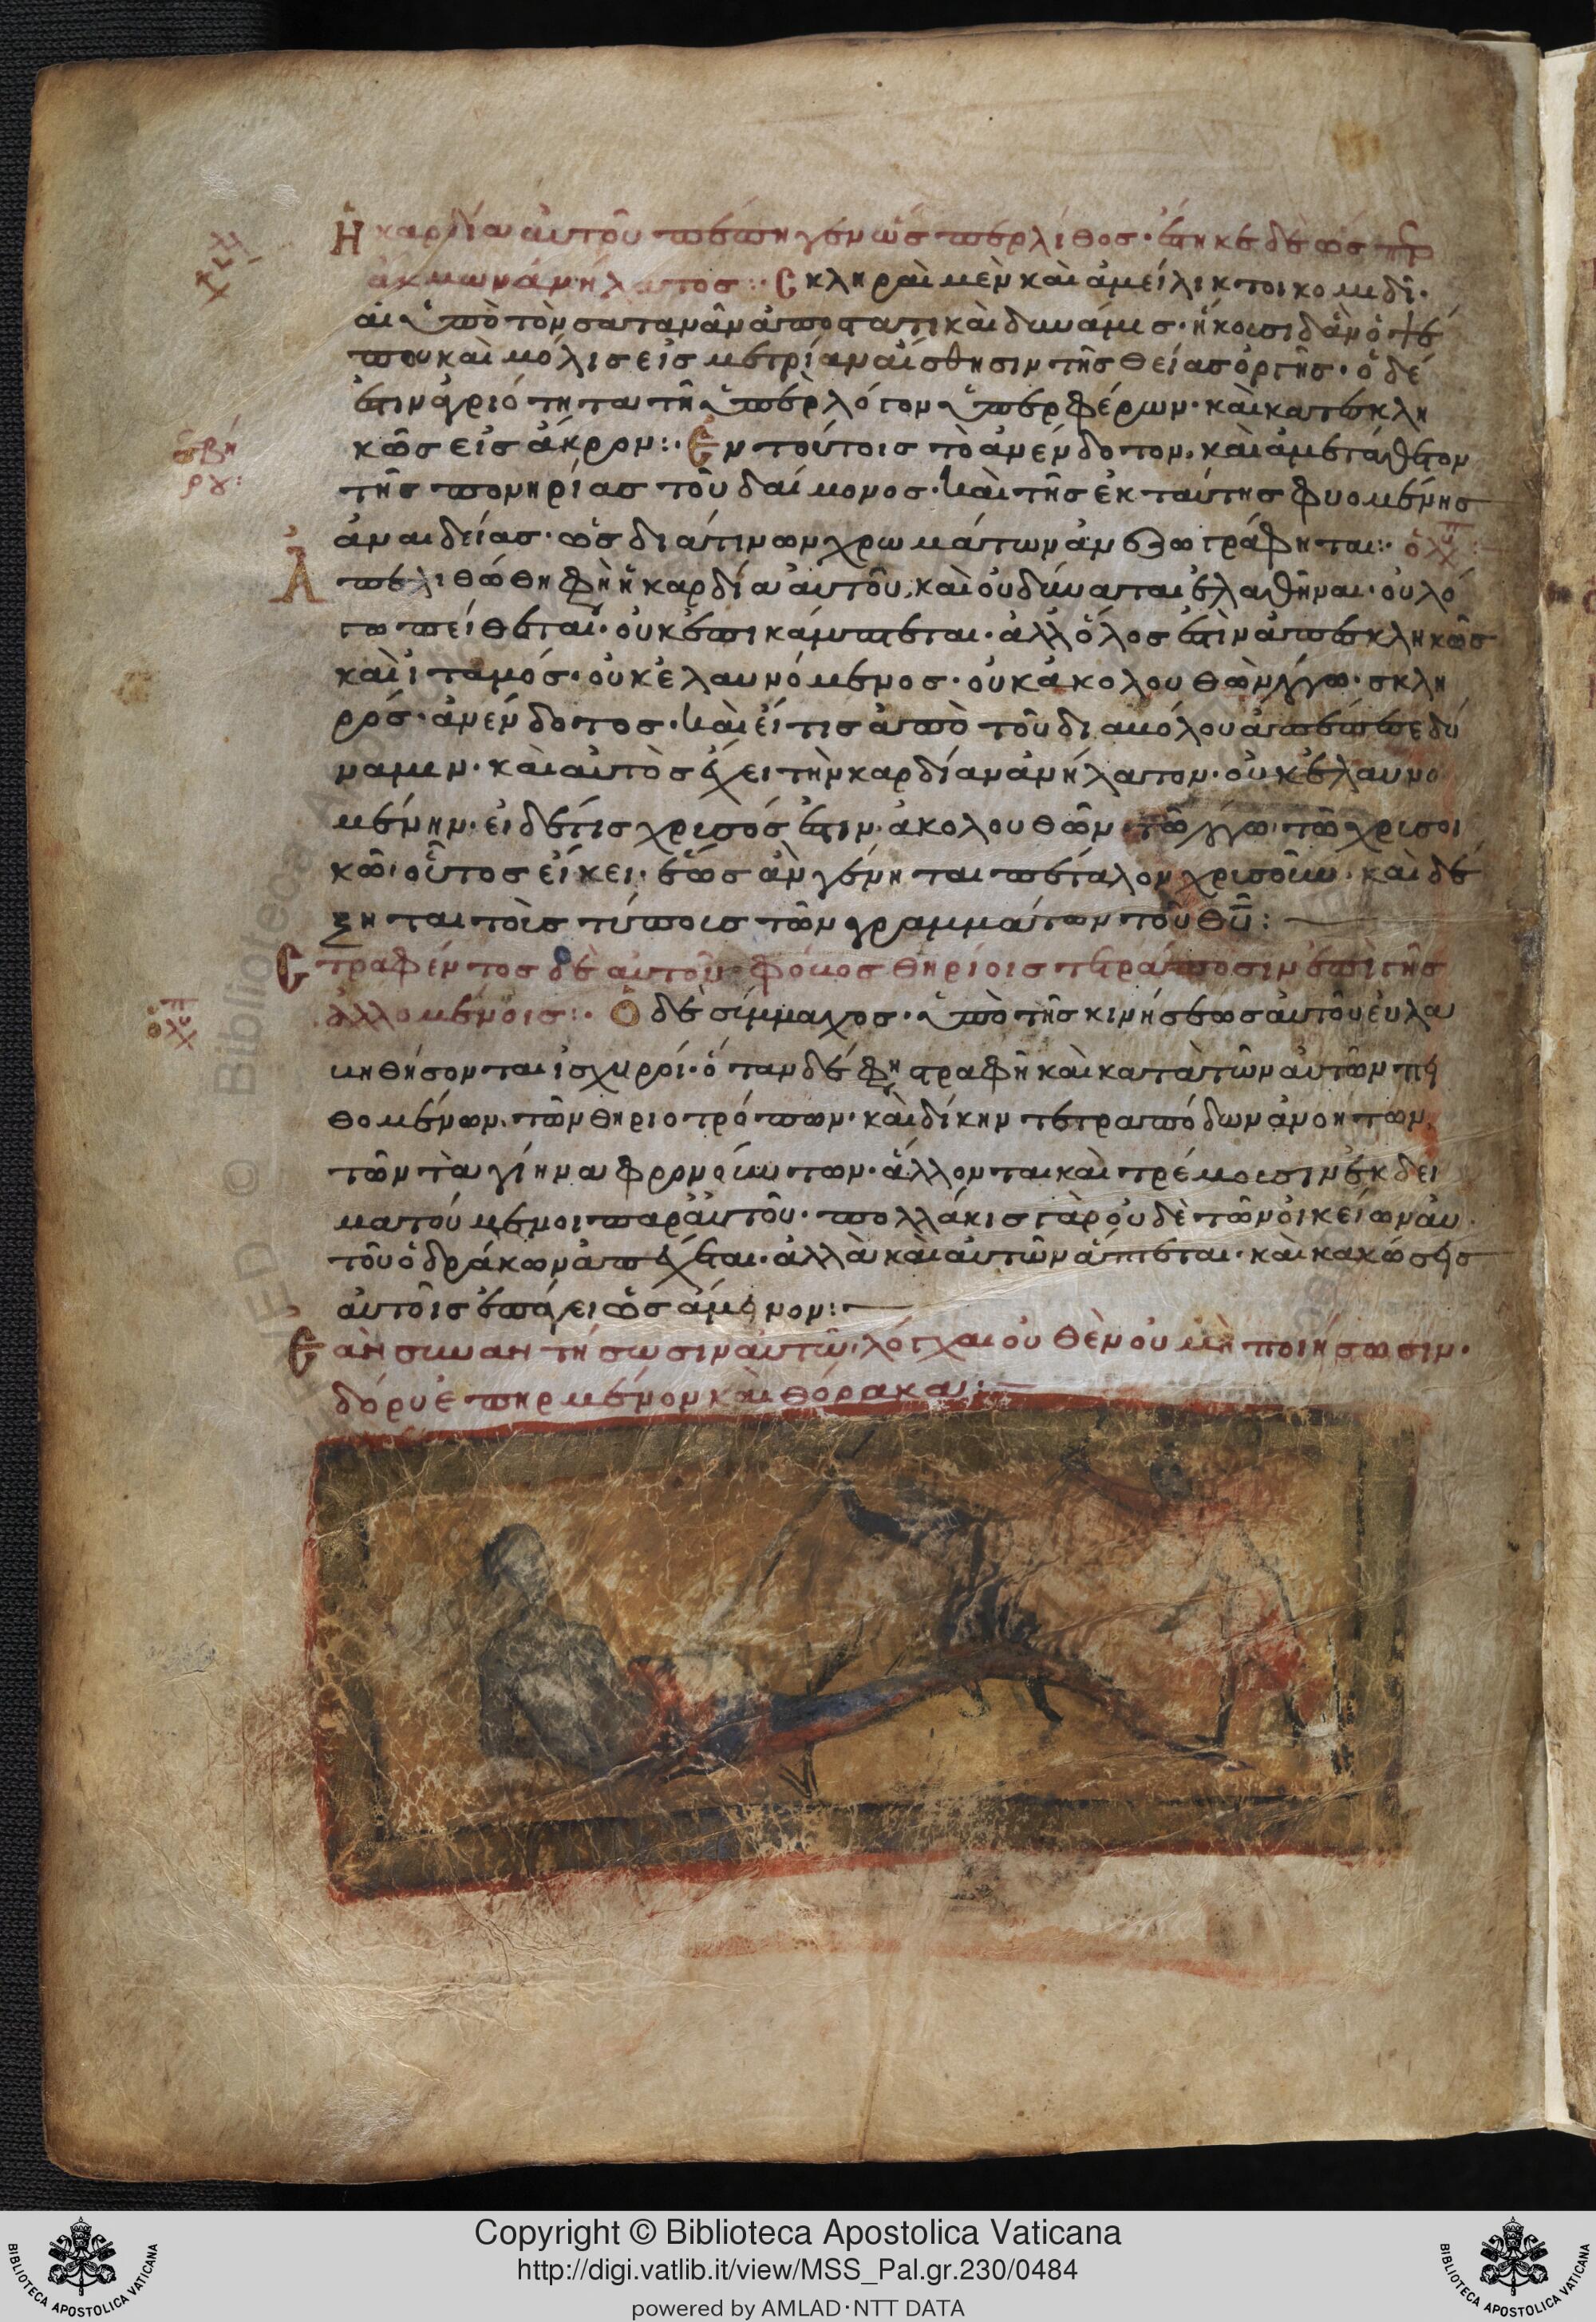 Ἡ καρδία αὐτοῦ πέπηγεν ὡς περ λίθος· ἕστηκε δὲ ὡς περ
ἄκμων ἀνήλατος:· Σκληραὶ μὲν καὶ ἀμείλικτοι κομιδῆ·
αἱ ὑπὸ τὸν σατανᾶν ἀποστατικαὶ δυνάμεις· ἥκουσι δ' ἂν ὀψέ
που καὶ μόλις εἰς μετρίαν αἴσθησιν τῆς θείας ὀργῆς· ὁ δέ
ἐστιν ἀγριότητα τῆ ὑπὲρ λόγον ὑπερφέρων· καὶ κατεσκλη
κὼς εἰς ἄκρον:· Ἐν τούτοις τὸ ἀνένδοτον, καὶ ἀμετάθετον
τῆς πονηρίας τοῦ δαίμονος· καὶ τῆς ἐκ ταύτης φυομένης
ἀναιδείας· ὡς διά τινων χρωμάτων ἀνεζωγράφηται:· ολυμπ
Ἀπελιθώθη φη ἡ καρδία αὐτοῦ, καὶ οὐ δύναται ἐλαθῆναι· οὐ λό
γω πείθεται· οὐκ ἐπικάμπτεται· ἀλλ' ὅλος ἐστὶν ἀπεσκληκὼς
καὶ ἰταμός· οὐκ ἐλαυνόμενος· οὐκ ἀκολουθῶν λόγω· σκλη
ρός· ἀνένδοτος· καὶ εἴ τις ἀπὸ τοῦ διαβόλου ἀπέσπασε δύ
ναμιν· καὶ αὐτὸς ἔχει τὴν καρδίαν ἀνήλατον· οὐκ ἐλαυνο
μένην· εἰ δέ τις χρυσός ἐστιν· ἀκολουθῶν τῶ λόγω τῶ χρυσοι
κῶ· οὗτος εἴκει· ἕως ἂν γένηται πέταλον χρυσοῦν· καὶ δέ
ξηται τοῖς τύποις τῶν γραμμάτων τοῦ θυ:
Στραφέντος δὲ αὐτοῦ· φόβος θηρίοις τετράποσιν ἐπὶ γῆς
ἁλλομένοις:· Ὁ δὲ σύμμαχος· ὑπὸ τῆς κινήσεως αὐτοῦ εὐλα
βηθήσονται ἰσχυροί· ὅταν δέ φη στραφῆ καὶ κατὰ τῶν αὐτῶν πει
θομένων, τῶν θηριοτρόπων· καὶ δίκην τετραπόδων ἀνοήτων,
τῶν τὰ γήινα φρονούντων· ἅλλονται καὶ τρέμουσιν ἐκδει
ματούμενοι παρ' αὐτοῦ· πολλάκις γὰρ οὐδὲ τῶν οἰκείων αὐ
τοῦ ὁ δράκων ἀπέχεται· ἀλλὰ καὶ αὐτῶν ἅπτεται· καὶ κακώσεις
αὐτοῖς ἐπάγει ὡς ἄμεινον:
Ἐὰν συναντήσωσιν αὐτῶ, λόγχαι οὐθὲν οὐ μὴ ποιήσωσιν·
δόρυ ἐπηρμένον καὶ θόρακα:
Copyright © Biblioteca Apostolica Vaticana
http://digi.vatlib.it/view/MSS_Pal.gr.230/0484
powered by AMLAD·NTT DATA
BIBLIOTECA APOSTOLICA VATICANA
BIBLIOTECA APOSTOLICA VATICANA